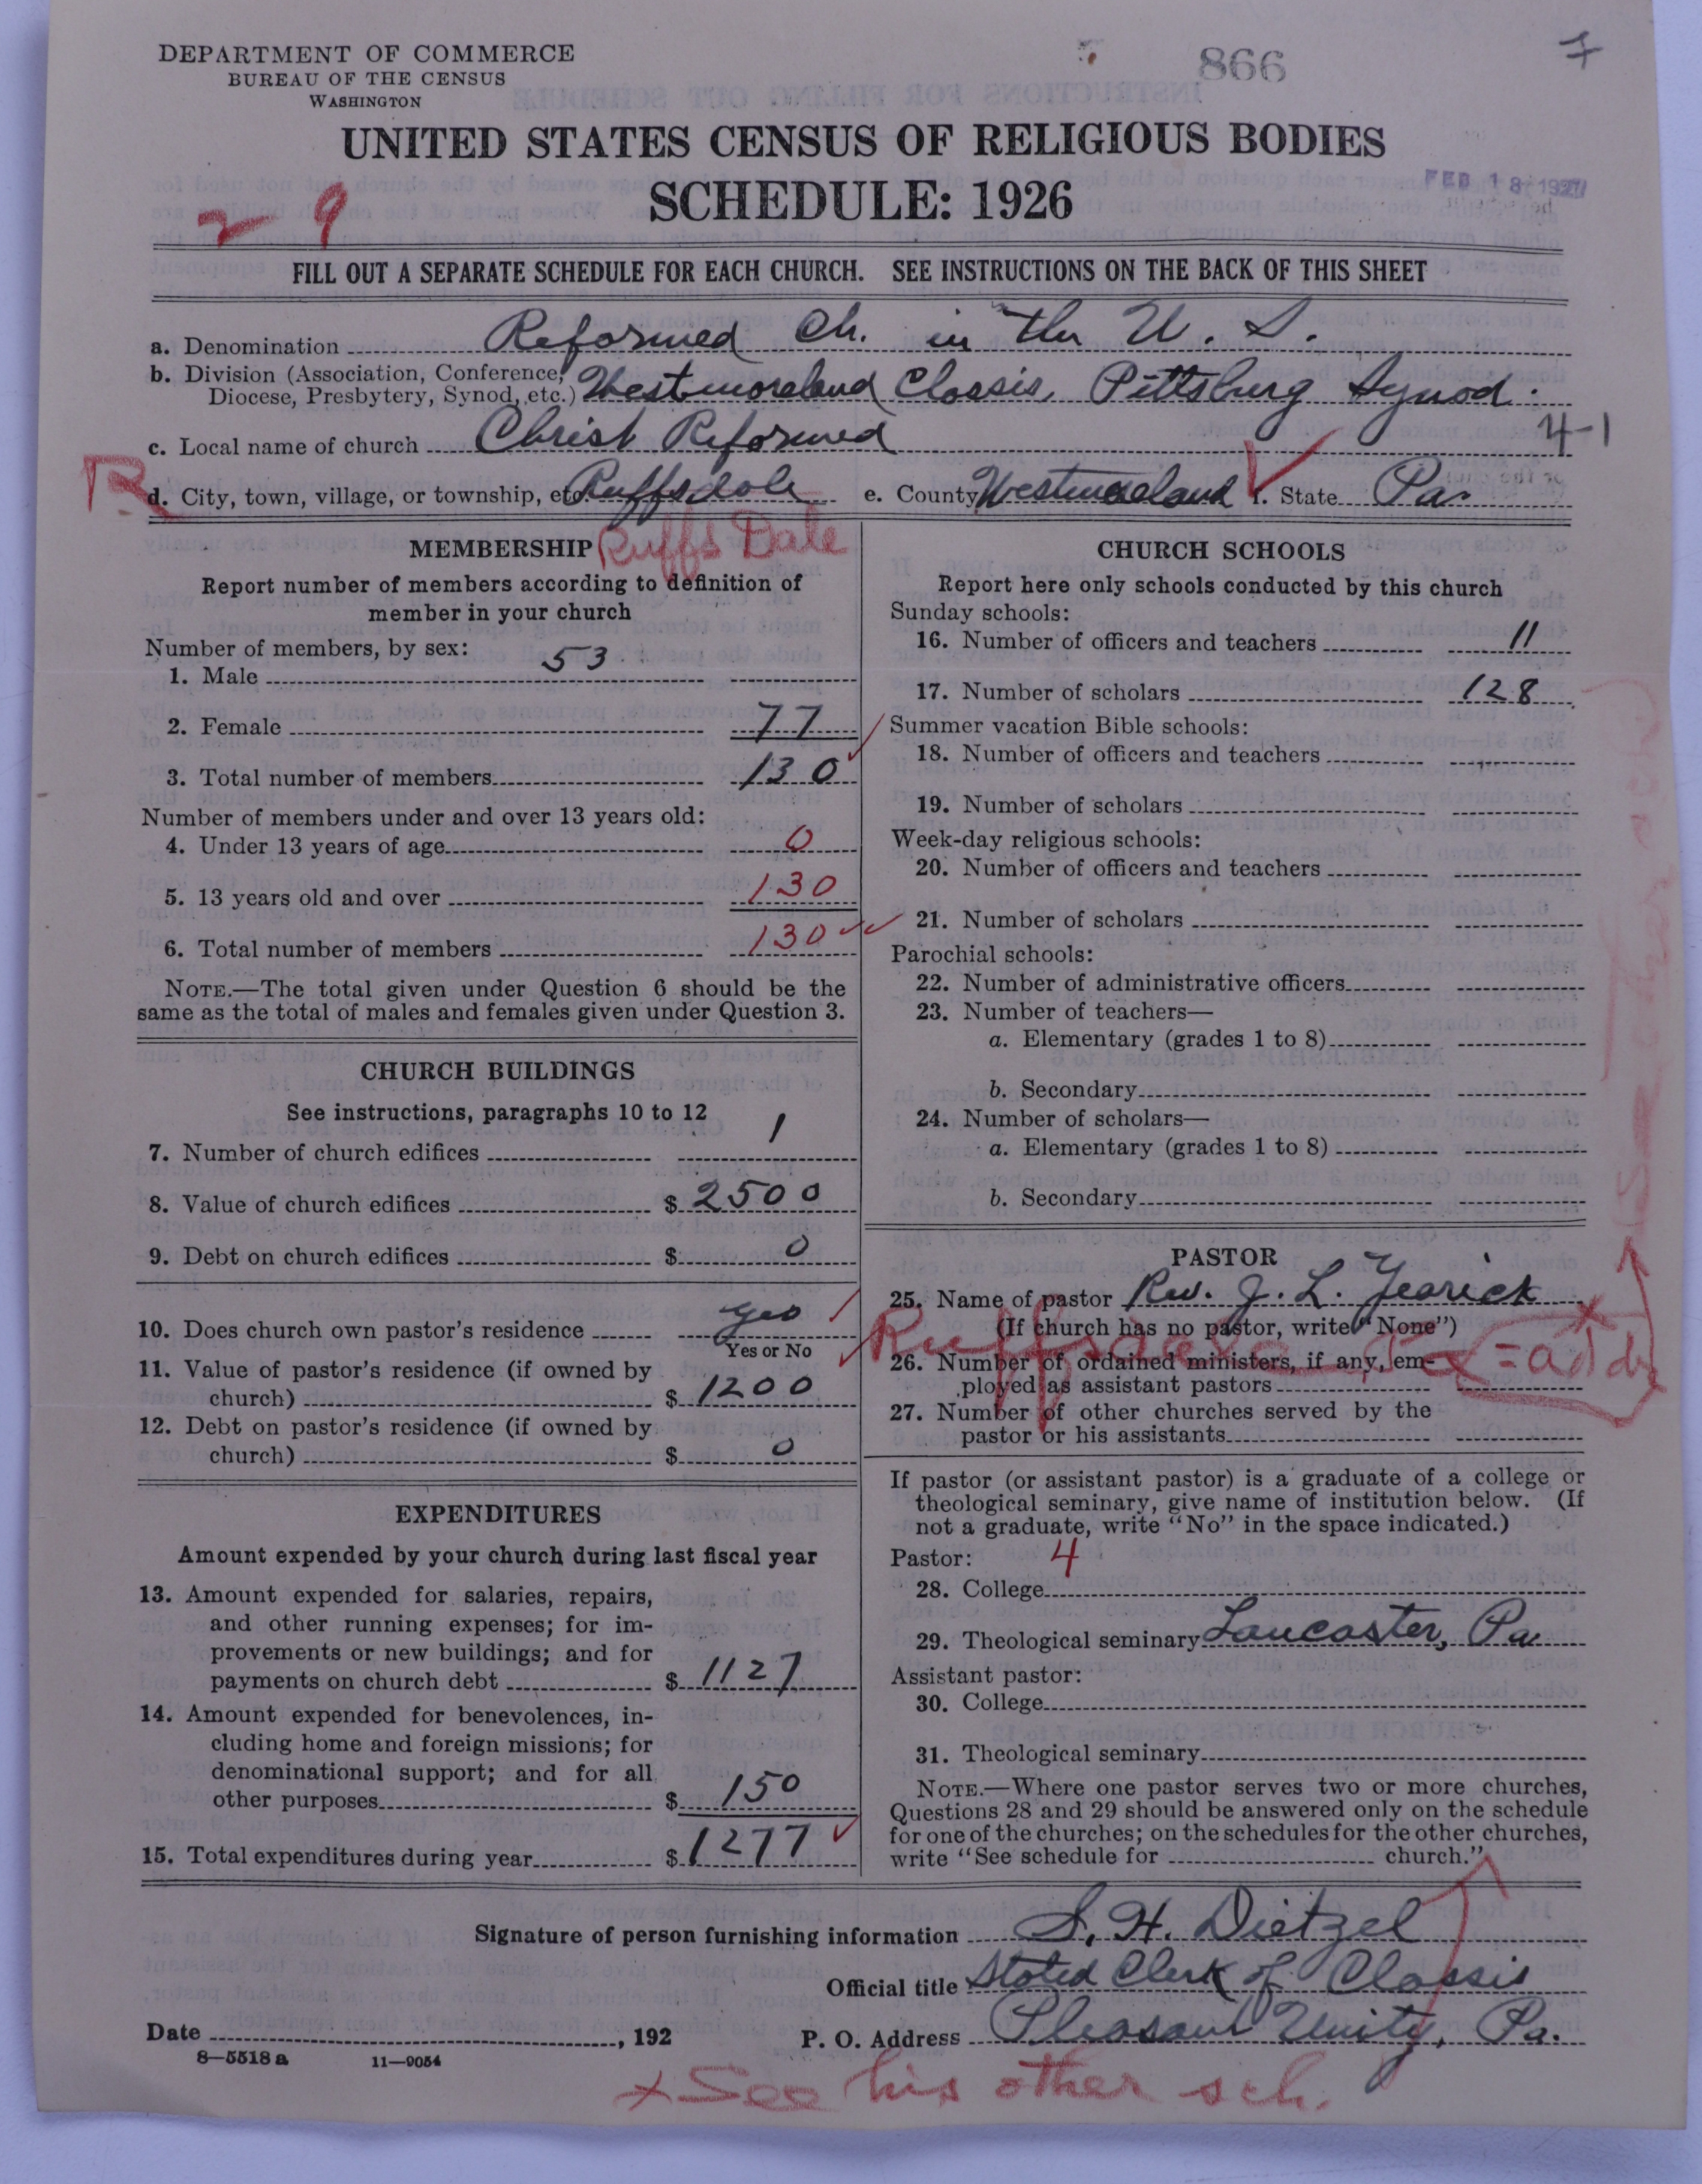 DEPARTMENT OF COMMERCE
BUREAU OF THE CENSUS
WASHINGTON
866
7
UNITED STATES CENSUS OF RELIGIOUS BODIES
SCHEDULE: 1926
FEB 18 1927
2 9
FILL OUT A SEPARATE SCHEDULE FOR EACH CHURCH. SEE INSTRUCTIONS ON THE BACK OF THIS SHEET
a. Denomination Reformed Ch. in the U. S.
b. Division (Association, Conference, Diocese, Presbytery, Synod, etc.) Westmoreland Classis, Pittsburg Synod.
4-1
c. Local name of church Christ Reformed
R d. City, town, village, or township, etc. Ruffsdale e. County Westmoreland f. State Pa.
Ruffs Dale
MEMBERSHIP
Report number of members according to definition of
member in your church
Number of members, by sex:
1. Male 53
2. Female 77
3. Total number of members 130
Number of members under and over 13 years old:
4. Under 13 years of age 0
5. 13 years old and over 130
6. Total number of members 130
NOTE.—The total given under Question 6 should be the
same as the total of males and females given under Question 3.
CHURCH BUILDINGS
See instructions, paragraphs 10 to 12
7. Number of church edifices 1
8. Value of church edifices $ 2500
9. Debt on church edifices $ 0
10. Does church own pastor's residence yes
Yes or No
11. Value of pastor's residence (if owned by
church) $ 1200
12. Debt on pastor's residence (if owned by
church) $ 0
EXPENDITURES
Amount expended by your church during last fiscal year
13. Amount expended for salaries, repairs,
and other running expenses; for im-
provements or new buildings; and for
payments on church debt $ 1127
14. Amount expended for benevolences, in-
cluding home and foreign missions; for
denominational support; and for all
other purposes $ 150
15. Total expenditures during year $ 1277
CHURCH SCHOOLS
Report here only schools conducted by this church
Sunday schools:
16. Number of officers and teachers 11
17. Number of scholars 128
Summer vacation Bible schools:
18. Number of officers and teachers
19. Number of scholars
Week-day religious schools:
20. Number of officers and teachers
21. Number of scholars
Parochial schools:
22. Number of administrative officers
23. Number of teachers—
a. Elementary (grades 1 to 8)
b. Secondary
24. Number of scholars—
a. Elementary (grades 1 to 8)
b. Secondary
PASTOR
25. Name of pastor Rev. J. L. Yearick
(If church has no pastor, write "None")
26. Number of ordained ministers, if any, em-
ployed as assistant pastors
= add
27. Number of other churches served by the
pastor or his assistants
If pastor (or assistant pastor) is a graduate of a college or
theological seminary, give name of institution below. (If
not a graduate, write "No" in the space indicated.)
Pastor: 4
28. College
29. Theological seminary Lancaster, Pa
Assistant pastor:
30. College
31. Theological seminary
NOTE.—Where one pastor serves two or more churches,
Questions 28 and 29 should be answered only on the schedule
for one of the churches; on the schedules for the other churches,
write "See schedule for church."
Signature of person furnishing information S. H. Dietzel
Official title Stated Clerk of Classis
Date , 192 P. O. Address Pleasant Unity, Pa.
8-5518 a 11-9054
x See his other sch.